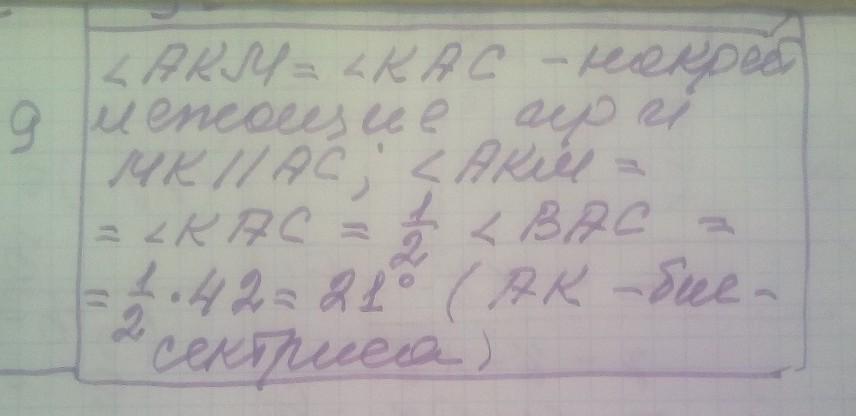 ∠AKM = ∠KAC - накрест
9 лежащие при
MK // AC; ∠AKM =
= ∠KAC = 1/2 ∠BAC =
= 1/2 · 42 = 21° (AK - бис-
сектриса)